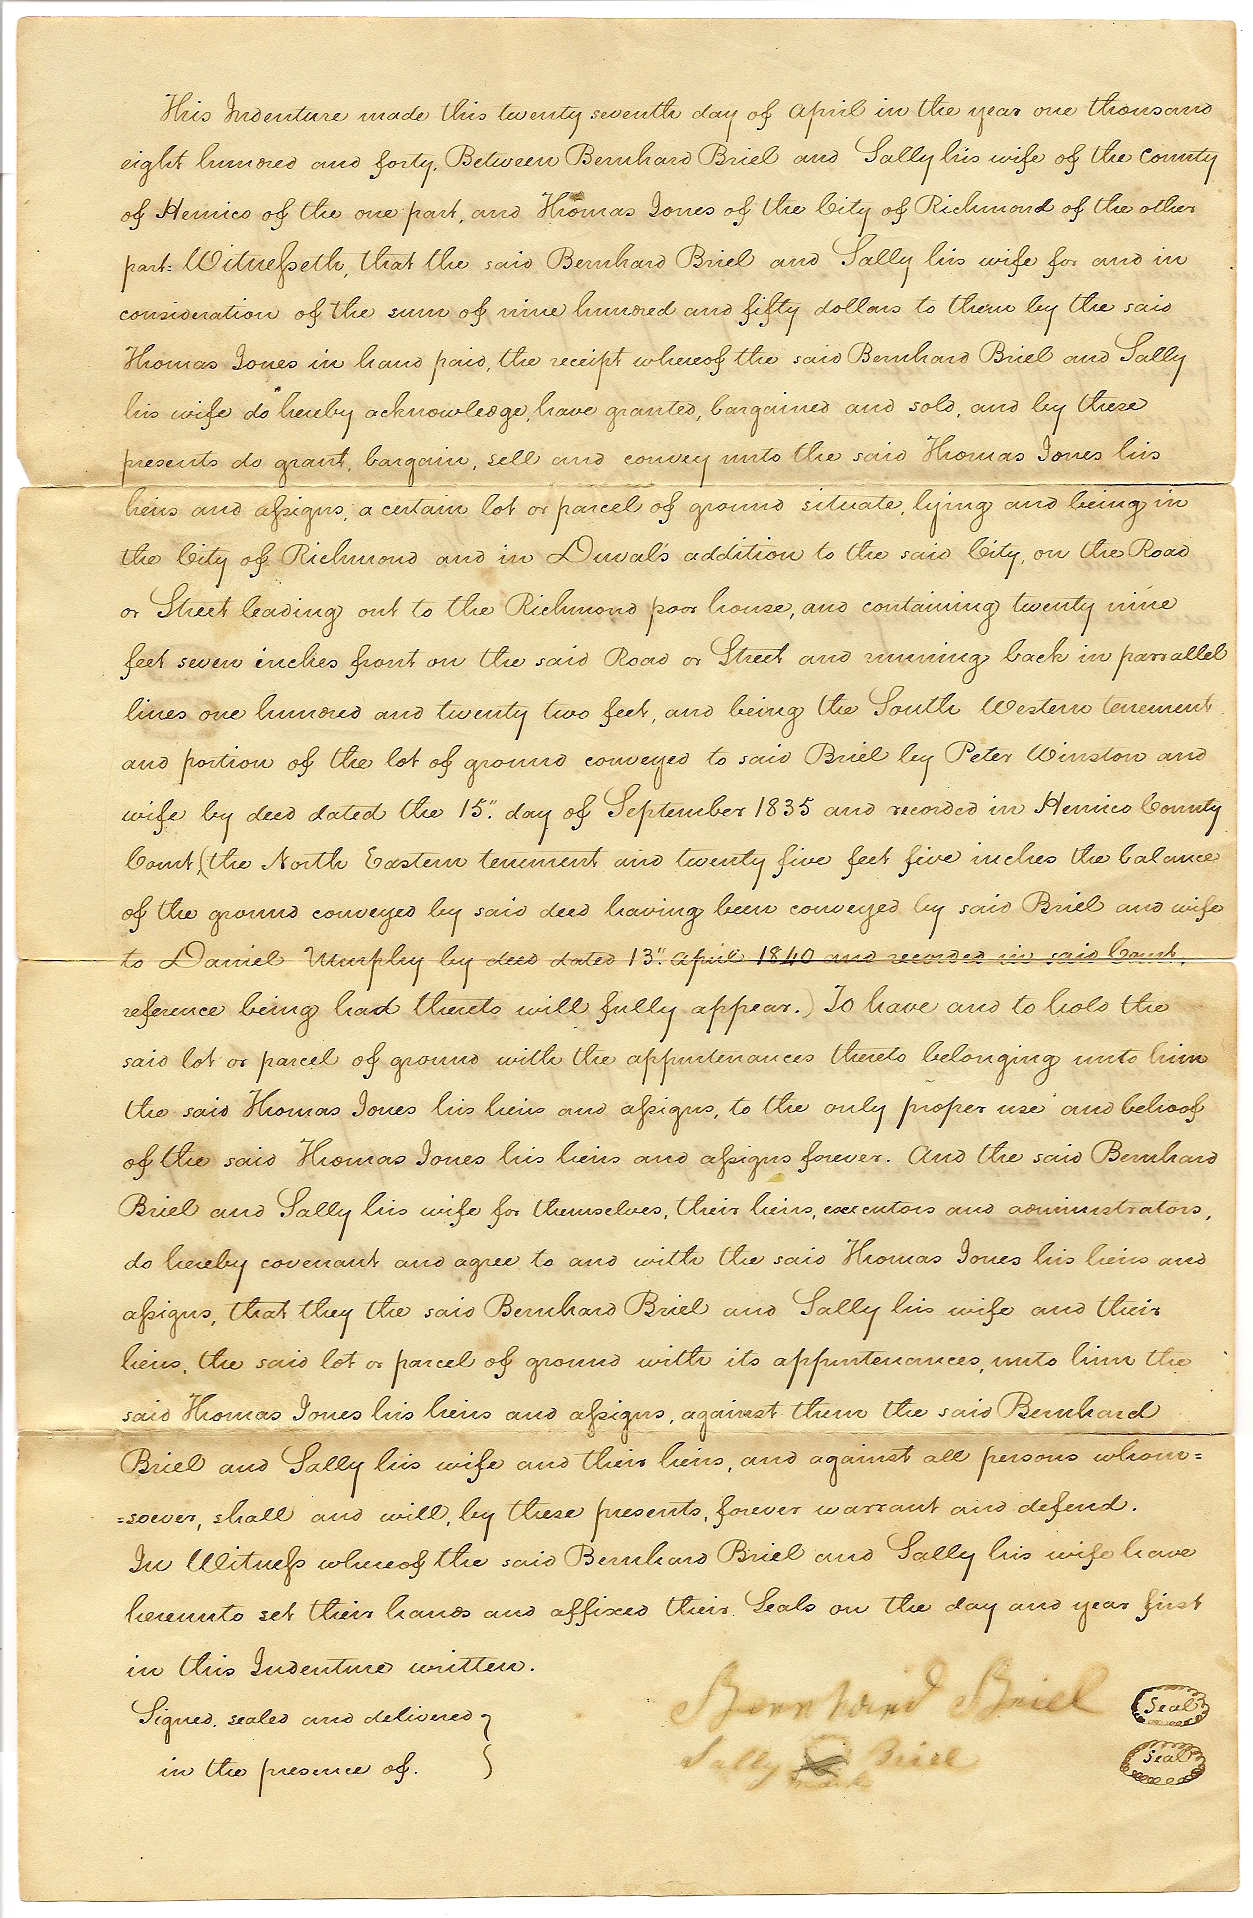 This Indenture made this twenty seventh day of April in the year one thousand
eight hundred and forty, Between Bernhard Briel and Sally his wife of the County
of Henrico of the one part, and Thomas Jones of the City of Richmond of the other
part: Witnesseth, that the said Bernhard Briel and Sally his wife for and in
consideration of the sum of nine hundred and fifty dollars to them by the said
Thomas Jones in hand paid, the receipt whereof the said Bernhard Briel and Sally
his wife do hereby acknowledge, have granted, bargained and sold, and by these
presents do grant, bargain, sell and convey unto the said Thomas Jones his
heirs and assigns, a certain lot or parcel of ground situate, lying and being in
the City of Richmond and in Duval's addition to the said City, on the Road
or Street leading out to the Richmond poor house, and containing twenty nine
feet seven inches front on the said Road or Street and running back in parrallel
lines one hundred and twenty two feet, and being the South Western tenement
and portion of the lot of ground conveyed to said Briel by Peter Winston and
wife by deed dated the 15". day of September 1835 and recorded in Henrico County
Court, (the North Eastern tenement and twenty five feet five inches the balance
of the ground conveyed by said deed having been conveyed by said Briel and wife
to Daniel Murphy by deed dated 13". April 1840 and recorded in said Court,
reference being had thereto will fully appear.) To have and to hold the
said lot or parcel of ground with the appurtenances thereto belonging unto him
the said Thomas Jones his heirs and assigns, to the only proper use and behoof
of the said Thomas Jones his heirs and assigns forever. And the said Bernhard
Briel and Sally his wife for themselves, their heirs, executors and administrators,
do hereby covenant and agree to and with the said Thomas Jones his heirs and
assigns, that they the said Bernhard Briel and Sally his wife and their
heirs, the said lot or parcel of ground with its appurtenances, unto him the
said Thomas Jones his heirs and assigns, against them the said Bernhard
Briel and Sally his wife and their heirs, and against all persons whom=
=soever, shall and will, by these presents, forever warrant and defend.
In Witness whereof the said Bernhard Briel and Sally his wife have
hereunto set their hands and affixed their Seals on the day and year first
in this Indenture written.
Signed, sealed and delivered
in the presence of.
Bernhard Briel Seal
Sally Briel Seal
mark